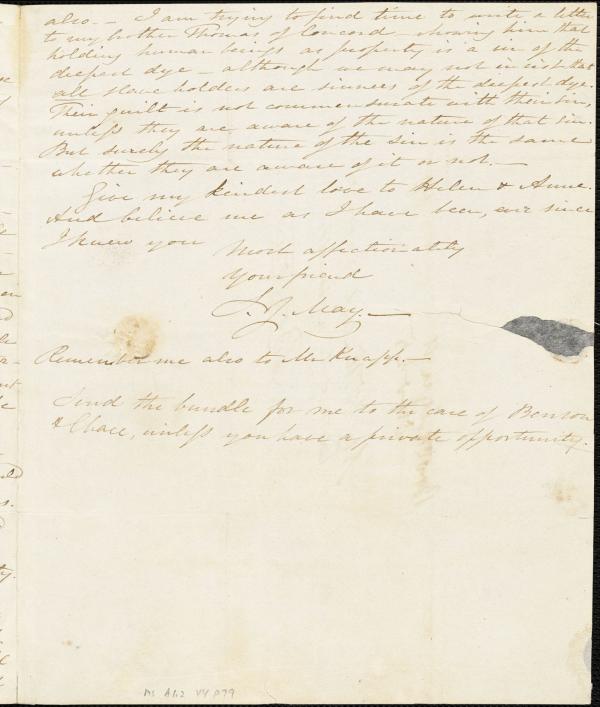 also. – I am trying to find time to write a letter
to my brother Thomas of Concord – showing him that
holding human beings as property is a sin of the
deepest dye – although we may not insist that
all slave holders are sinners of the deepest dye.
Their guilt is not commensurate with their sin,
unless they are aware of the nature of that sin.
But surely the nature of the sin is the same
whether they are aware of it or not. –
Give my kindest love to Helen & Anne.
And believe me as I have been, ever since
I knew you
Most affectionately
Your friend
S. J. May. –
Remember me also to Mr Knapp. –
Send the bundle for me to the care of Benson
& Chace, unless you have a private opportunity.
Ms A.1.2 V4 p79